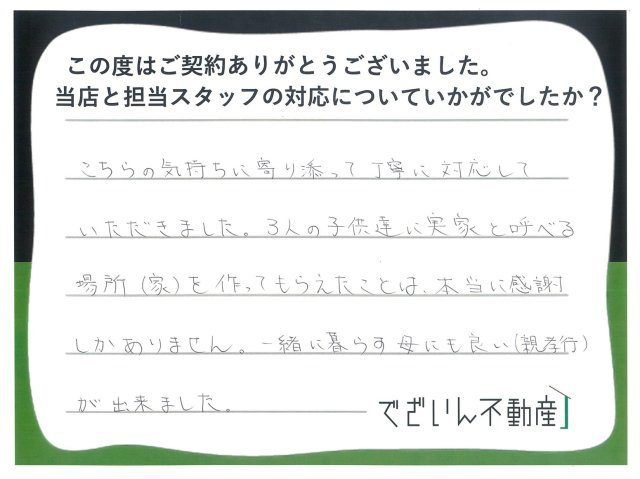 この度はご契約ありがとうございました。
当店と担当スタッフの対応についていかがでしたか？
こちらの気持ちに寄り添って丁寧に対応して
いただきました。3人の子供達に実家と呼べる
場所(家)を作ってもらえたことは、本当に感謝
しかありません。一緒に暮らす母にも良い(親孝行)
が出来ました。
でざいん不動産